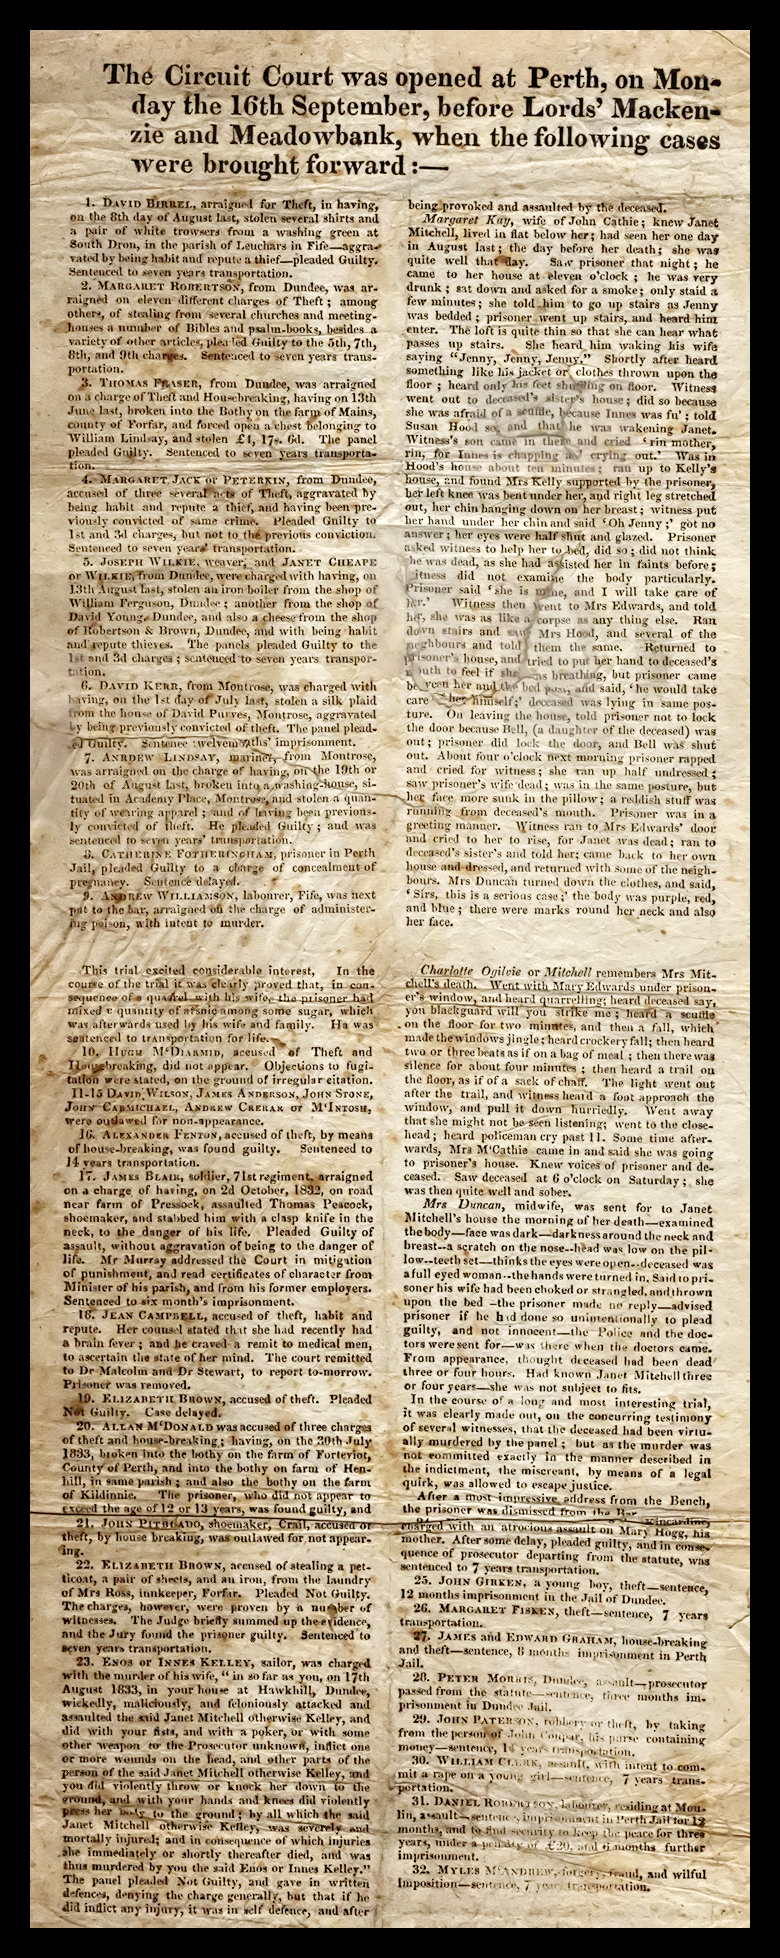 The Circuit Court was opened at Perth, on Mon-
day the 16th September, before Lords' Macken-
zie and Meadowbank, when the following cases
were brought forward :—
1. DAVID BIRREL, arraigned for Theft, in having,
on the 8th day of August last, stolen several shirts and
a pair of white trowsers from a washing green at
South Dron, in the parish of Leuchars in Fife—aggra-
vated by being habit and repute a thief—pleaded Guilty.
Sentenced to seven years transportation.
2. MARGARET ROBERTSON, from Dundee, was ar-
raigned on eleven different charges of Theft ; among
others, of stealing from several churches and meeting-
houses a number of Bibles and psalm-books, besides a
variety of other articles, pleaded Guilty to the 5th, 7th,
8th, and 9th charges. Sentenced to seven years trans-
portation.
3. THOMAS FRASER, from Dundee, was arraigned
on a charge of Theft and Housebreaking, having on 13th
June last, broken into the Bothy on the farm of Mains,
county of Forfar, and forced open a chest belonging to
William Lindsay, and stolen £4, 17s. 6d. The panel
pleaded Guilty. Sentenced to seven years transporta-
tion.
4. MARGARET JACK or PETERKIN, from Dundee,
accused of three several acts of Theft, aggravated by
being habit and repute a thief, and having been pre-
viously convicted of same crime. Pleaded Guilty to
1st and 3d charges, but not to the previous conviction.
Sentenced to seven years' transportation.
5. JOSEPH WILKIE, weaver, and JANET CHEAPE
or WILKIE, from Dundee, were charged with having, on
13th August last, stolen an iron boiler from the shop of
William Ferguson, Dundee ; another from the shop of
David Young, Dundee, and also a cheese from the shop
of Robertson & Brown, Dundee, and with being habit
and repute thieves. The panels pleaded Guilty to the
1st and 3d charges ; sentenced to seven years transpor-
tation.
6. DAVID KERR, from Montrose, was charged with
having, on the 1st day of July last, stolen a silk plaid
from the house of David Purves, Montrose, aggravated
by being previously convicted of theft. The panel plead-
ed Guilty. Sentence twelve months' imprisonment.
7. ANDREW LINDSAY, mariner, from Montrose,
was arraigned on the charge of having, on the 19th or
20th of August last, broken into a washing-house, si-
tuated in Academy Place, Montrose, and stolen a quan-
tity of wearing apparel ; and of having been previous-
ly convicted of theft. He pleaded Guilty ; and was
sentenced to seven years' transportation.
8. CATHERINE FOTHERINGHAM, prisoner in Perth
Jail, pleaded Guilty to a charge of concealment of
pregnancy. Sentence delayed.
9. ANDREW WILLIAMSON, labourer, Fife, was next
put to the bar, arraigned on the charge of administer-
ing poison, with intent to murder.
This trial excited considerable interest, In the
course of the trial it was clearly proved that, in con-
sequence of a quarrel with his wife, the prisoner had
mixed a quantity of arsnic among some sugar, which
was afterwards used by his wife and family. He was
sentenced to transportation for life.
10. HUGH M'DIARMID, accused of Theft and
Housebreaking, did not appear. Objections to fugi-
tation were stated, on the ground of irregular citation.
11-15 DAVID WILSON, JAMES ANDERSON, JOHN STONE,
JOHN CARMICHAEL, ANDREW CRERAR or M'INTOSH,
were outlawed for non-appearance.
16. ALEXANDER FENTON, accused of theft, by means
of house-breaking, was found guilty. Sentenced to
14 years transportation.
17. JAMES BLAIR, soldier, 71st regiment, arraigned
on a charge of having, on 2d October, 1832, on road
near farm of Pressock, assaulted Thomas Peacock,
shoemaker, and stabbed him with a clasp knife in the
neck, to the danger of his life. Pleaded Guilty of
assault, without aggravation of being to the danger of
life. Mr Murray addressed the Court in mitigation
of punishment, and read certificates of character from
Minister of his parish, and from his former employers.
Sentenced to six month's imprisonment.
18. JEAN CAMPBELL, accused of theft, habit and
repute. Her counsel stated that she had recently had
a brain fever ; and he craved a remit to medical men,
to ascertain the state of her mind. The court remitted
to Dr Malcolm and Dr Stewart, to report to-morrow.
Prisoner was removed.
19. ELIZABETH BROWN, accused of theft. Pleaded
Not Guilty. Case delayed.
20. ALLAN M'DONALD was accused of three charges
of theft and house-breaking ; having, on the 30th July
1833, broken into the bothy on the farm of Forteviot,
County of Perth, and into the bothy on farm of Hen-
hill, in same parish ; and also the bothy on the farm
of Kildinnie. The prisoner, who did not appear to
exceed the age of 12 or 13 years, was found guilty, and
21. JOHN PITBLADO, shoemaker, Crail, accused of
theft, by house breaking, was outlawed for not appear-
ing.
22. ELIZABETH BROWN, accused of stealing a pet-
ticoat, a pair of sheets, and an iron, from the laundry
of Mrs Ross, innkeeper, Forfar. Pleaded Not Guilty.
The charges, however, were proven by a number of
witnesses. The Judge briefly summed up the evidence,
and the Jury found the prisoner guilty. Sentenced to
seven years transportation.
23. ENOS or INNES KELLEY, sailor, was charged
with the murder of his wife, " in so far as you, on 17th
August 1833, in your house at Hawkhill, Dundee,
wickedly, maliciously, and feloniously attacked and
assaulted the said Janet Mitchell otherwise Kelley, and
did with your fists, and with a poker, or with some
other weapon to the Prosecutor unknown, inflict one
or more wounds on the head, and other parts of the
person of the said Janet Mitchell otherwise Kelley, and
you did violently throw or knock her down to the
ground, and with your hands and knees did violently
press her body to the ground ; by all which the said
Janet Mitchell otherwise Kelley, was severely and
mortally injured; and in consequence of which injuries
she immediately or shortly thereafter died, and was
thus murdered by you the said Enos or Innes Kelley."
The panel pleaded Not Guilty, and gave in written
defences, denying the charge generally, but that if he
did inflict any injury, it was in self defence, and after
being provoked and assaulted by the deceased.
Margaret Kay, wife of John Cathie ; knew Janet
Mitchell, lived in flat below her ; had seen her one day
in August last ; the day before her death ; she was
quite well that day. Saw prisoner that night ; he
came to her house at eleven o'clock ; he was very
drunk ; sat down and asked for a smoke; only staid a
few minutes ; she told him to go up stairs as Jenny
was bedded ; prisoner went up stairs, and heard him
enter. The loft is quite thin so that she can hear what
passes up stairs. She heard him waking his wife
saying "Jenny, Jenny, Jenny." Shortly after heard
something like his jacket or clothes thrown upon the
floor ; heard only his feet shuffling on floor. Witness
went out to deceased's sister's house ; did so because
she was afraid of a scuffle, because Innes was fu' ; told
Susan Hood so, and that he was wakening Janet.
Witness's son came in there and cried 'rin mother,
rin, for Innes is chapping a' crying out.' Was in
Hood's house about ten minutes ; ran up to Kelly's
house, and found Mrs Kelly supported by the prisoner,
her left knee was bent under her, and right leg stretched
out, her chin hanging down on her breast ; witness put
her hand under her chin and said 'Oh Jenny ;' got no
answer ; her eyes were half shut and glazed. Prisoner
asked witness to help her to bed, did so ; did not think
he was dead, as she had assisted her in faints before ;
itness did not examine the body particularly.
Prisoner said 'she is mine, and I will take care of
her.' Witness then went to Mrs Edwards, and told
her, she was as like a corpse as any thing else. Ran
down stairs and saw Mrs Hood, and several of the
neighbours and told them the same. Returned to
prisoner's house, and tried to put her hand to deceased's
outh to feel if she as breathing, but prisoner came
between her and the bed post, and said, 'he would take
care her himself ;' deceased was lying in same pos-
ture. On leaving the house, told prisoner not to lock
the door because Bell, (a daughter of the deceased) was
out ; prisoner did lock the door, and Bell was shut
out. About four o'clock next morning prisoner rapped
and cried for witness ; she ran up half undressed ;
saw prisoner's wife dead ; was in the same posture, but
her face more sunk in the pillow ; a reddish stuff was
running from deceased's mouth. Prisoner was in a
greeting manner. Witness ran to Mrs Edwards' door
and cried to her to rise, for Janet was dead ; ran to
deceased's sister's and told her; came back to her own
house and dressed, and returned with some of the neigh-
bours. Mrs Duncan turned down the clothes, and said,
'Sirs, this is a serious case ;' the body was purple, red,
and blue ; there were marks round her neck and also
her face.
Charlotte Ogilvie or Mitchell remembers Mrs Mit-
chell's death. Went with Mary Edwards under prison-
er's window, and heard quarrelling; heard deceased say,
you blackguard will you strike me ; heard a scuffle
on the floor for two minutes, and then a fall, which
made the windows jingle ; heard crockery fall; then heard
two or three beats as if on a bag of meal ; then there was
silence for about four minutes ; then heard a trail on
the floor, as if of a sack of chaff. The light went out
after the trail, and witness heard a foot approach the
window, and pull it down hurriedly. Went away
that she might no be seen listening; went to the close-
head ; heard policeman cry past 11. Some time after-
wards, Mrs M'Cathie came in and said she was going
to prisoner's house. Knew voices of prisoner and de-
ceased. Saw deceased at 6 o'clock on Saturday ; she
was then quite well and sober.
Mrs Duncan, midwife, was sent for to Janet
Mitchell's house the morning of her death—examined
the body—face was dark—darkness around the neck and
breast--a scratch on the nose--head was low on the pil-
low--teeth set—thinks the eyes were open--deceased was
a full eyed woman--the hands were turned in. Said to pri-
soner his wife had been choked or strangled, and thrown
upon the bed —the prisoner made no reply—advised
prisoner if he had done so unintentionally to plead
guilty, and not innocent—the Police and the doc-
tors were sent for—was there when the doctors came.
From appearance, thought deceased had been dead
three or four hours. Had known Janet Mitchell three
or four years—she was not subject to fits.
In the course of a long and most interesting trial,
it was clearly made out, on the concurring testimony
of several witnesses, that the deceased had been virtu-
ally murdered by the panel ; but as the murder was
not committed exactly in the manner described in
the indictment, the miscreant, by means of a legal
quirk, was allowed to escape justice.
After a most impressive address from the Bench,
the prisoner was dismissed from the Bar
Kincardine,
charged with an atrocious assault on Mary Hogg, his
mother. After some delay, pleaded guilty, and in conse-
quence of prosecutor departing from the statute, was
sentenced to 7 years transportation.
25. JOHN GIRKEN, a young boy, theft—sentence,
12 months imprisonment in the Jail of Dundee.
26. MARGARET FISKEN, theft—sentence, 7 years
transportation.
27. JAMES and EDWARD GRAHAM, house-breaking
and theft—sentence, 8 months imprisonment in Perth
Jail.
28. PETER MORRIS, Dundee, assault—prosecutor
passed from the statute—sentence, three months im-
prisonment in Dundee Jail.
29. JOHN PATERSON, robbery or theft, by taking
from the person of John Coupar, his purse containing
money—sentence, 14 years transportation.
30. WILLIAM CLARK, assault, with intent to com-
mit a rape on a young girl—sentence, 7 years trans-
portation.
31. DANIEL ROBERTSON, labourer, residing at Mou-
lin, assault—sentence, imprisonment in Perth Jail for 12
months, and to find security to keep the peace for three
years, under a penalty of £20, and 6 months further
imprisonment.
32. MYLES M'ANDREW, forgery, fraud, and wilful
Imposition—sentence, 7 years transportation.